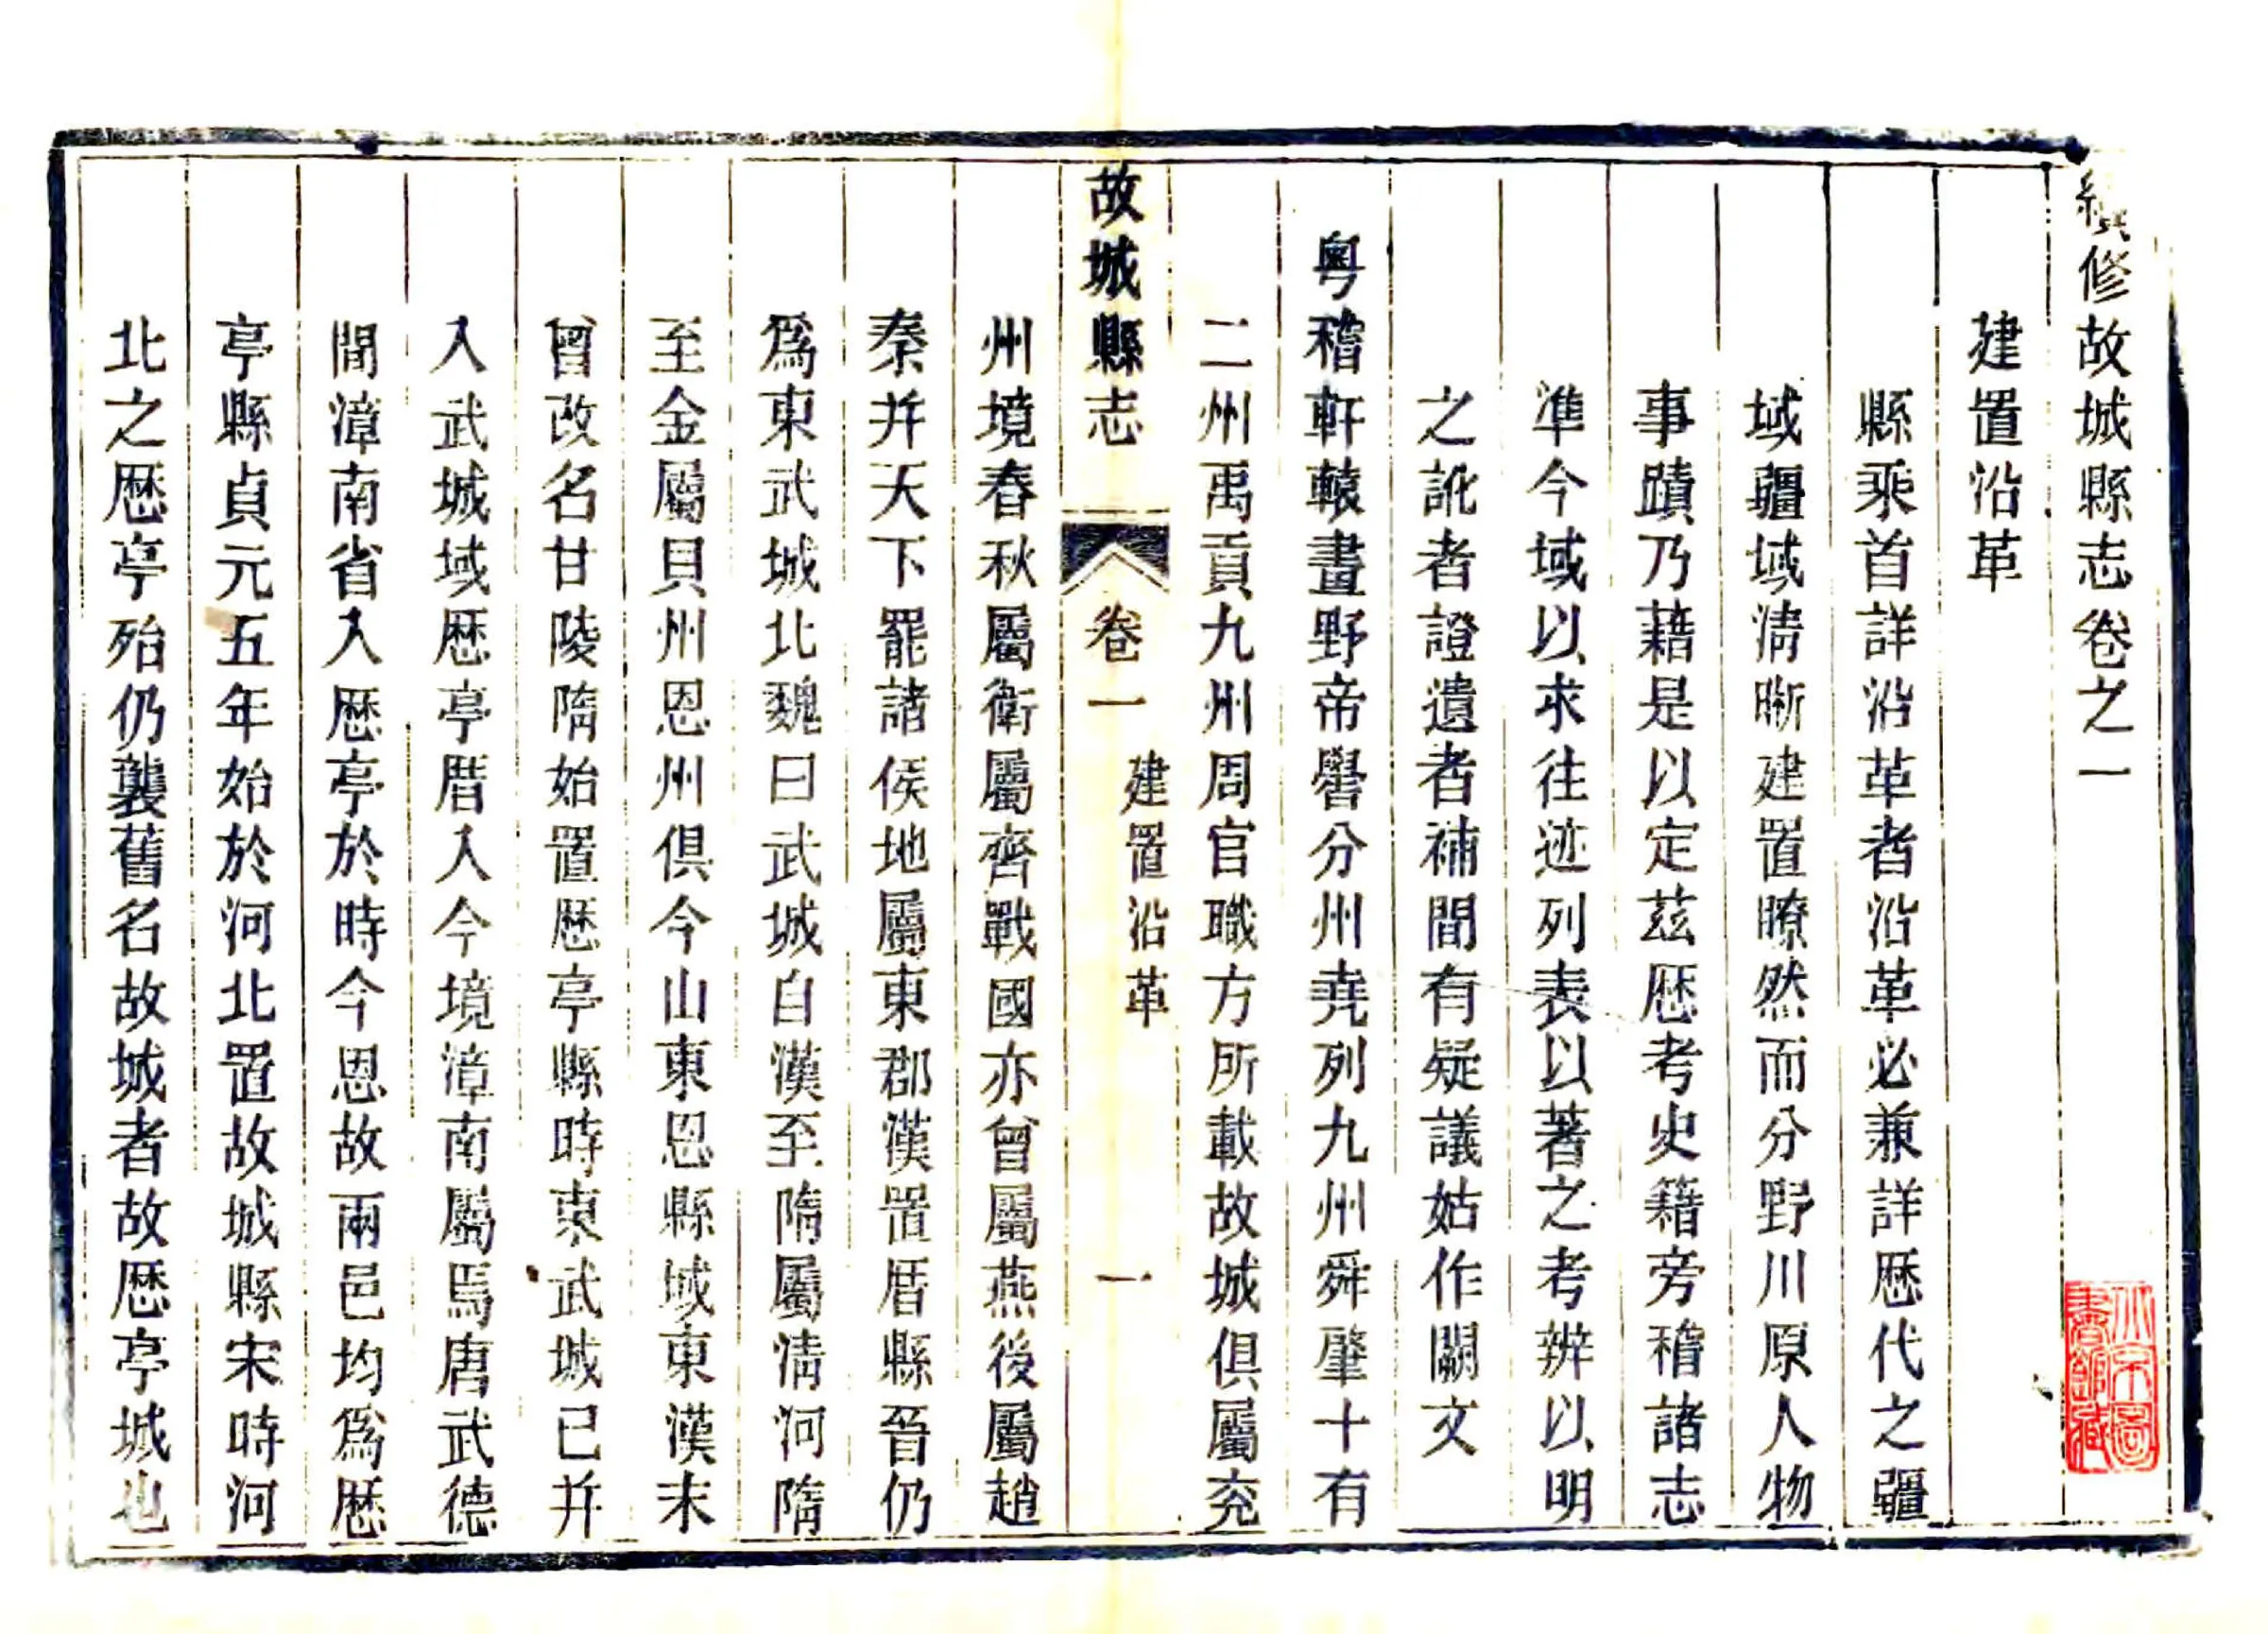 續修故城縣志卷之一
建置沿革
縣乘首詳沿革者沿革必兼詳歷代之疆
域疆域淸晰建置瞭然而分野川原人物
事蹟乃藉是以定茲歷考史籍旁稽諸志
準今域以求往迹列表以著之考辨以明
之訛者證遺者補間有疑議姑作闕文
粵稽軒轅畫野帝嚳分州堯列九州舜肇十有
二州禹貢九州周官職方所載故城俱屬兗
故城縣志
卷一
建置沿革
一
州境春秋屬衛屬齊戰國亦曾屬燕後屬趙
秦幷天下罷諸侯地屬東郡漢置厝縣晉仍
爲東武城北魏曰武城自漢至隋屬淸河隋
至金屬貝州恩州俱今山東恩縣域東漢末
曾改名甘陵隋始置歷亭縣時東武城已幷
入武城域歷亭厝入今境漳南屬焉唐武德
間漳南省入歷亭於時今恩故兩邑均爲歷
亭縣貞元五年始於河北置故城縣宋時河
北之歷亭殆仍襲舊名故城者故歷亭城也